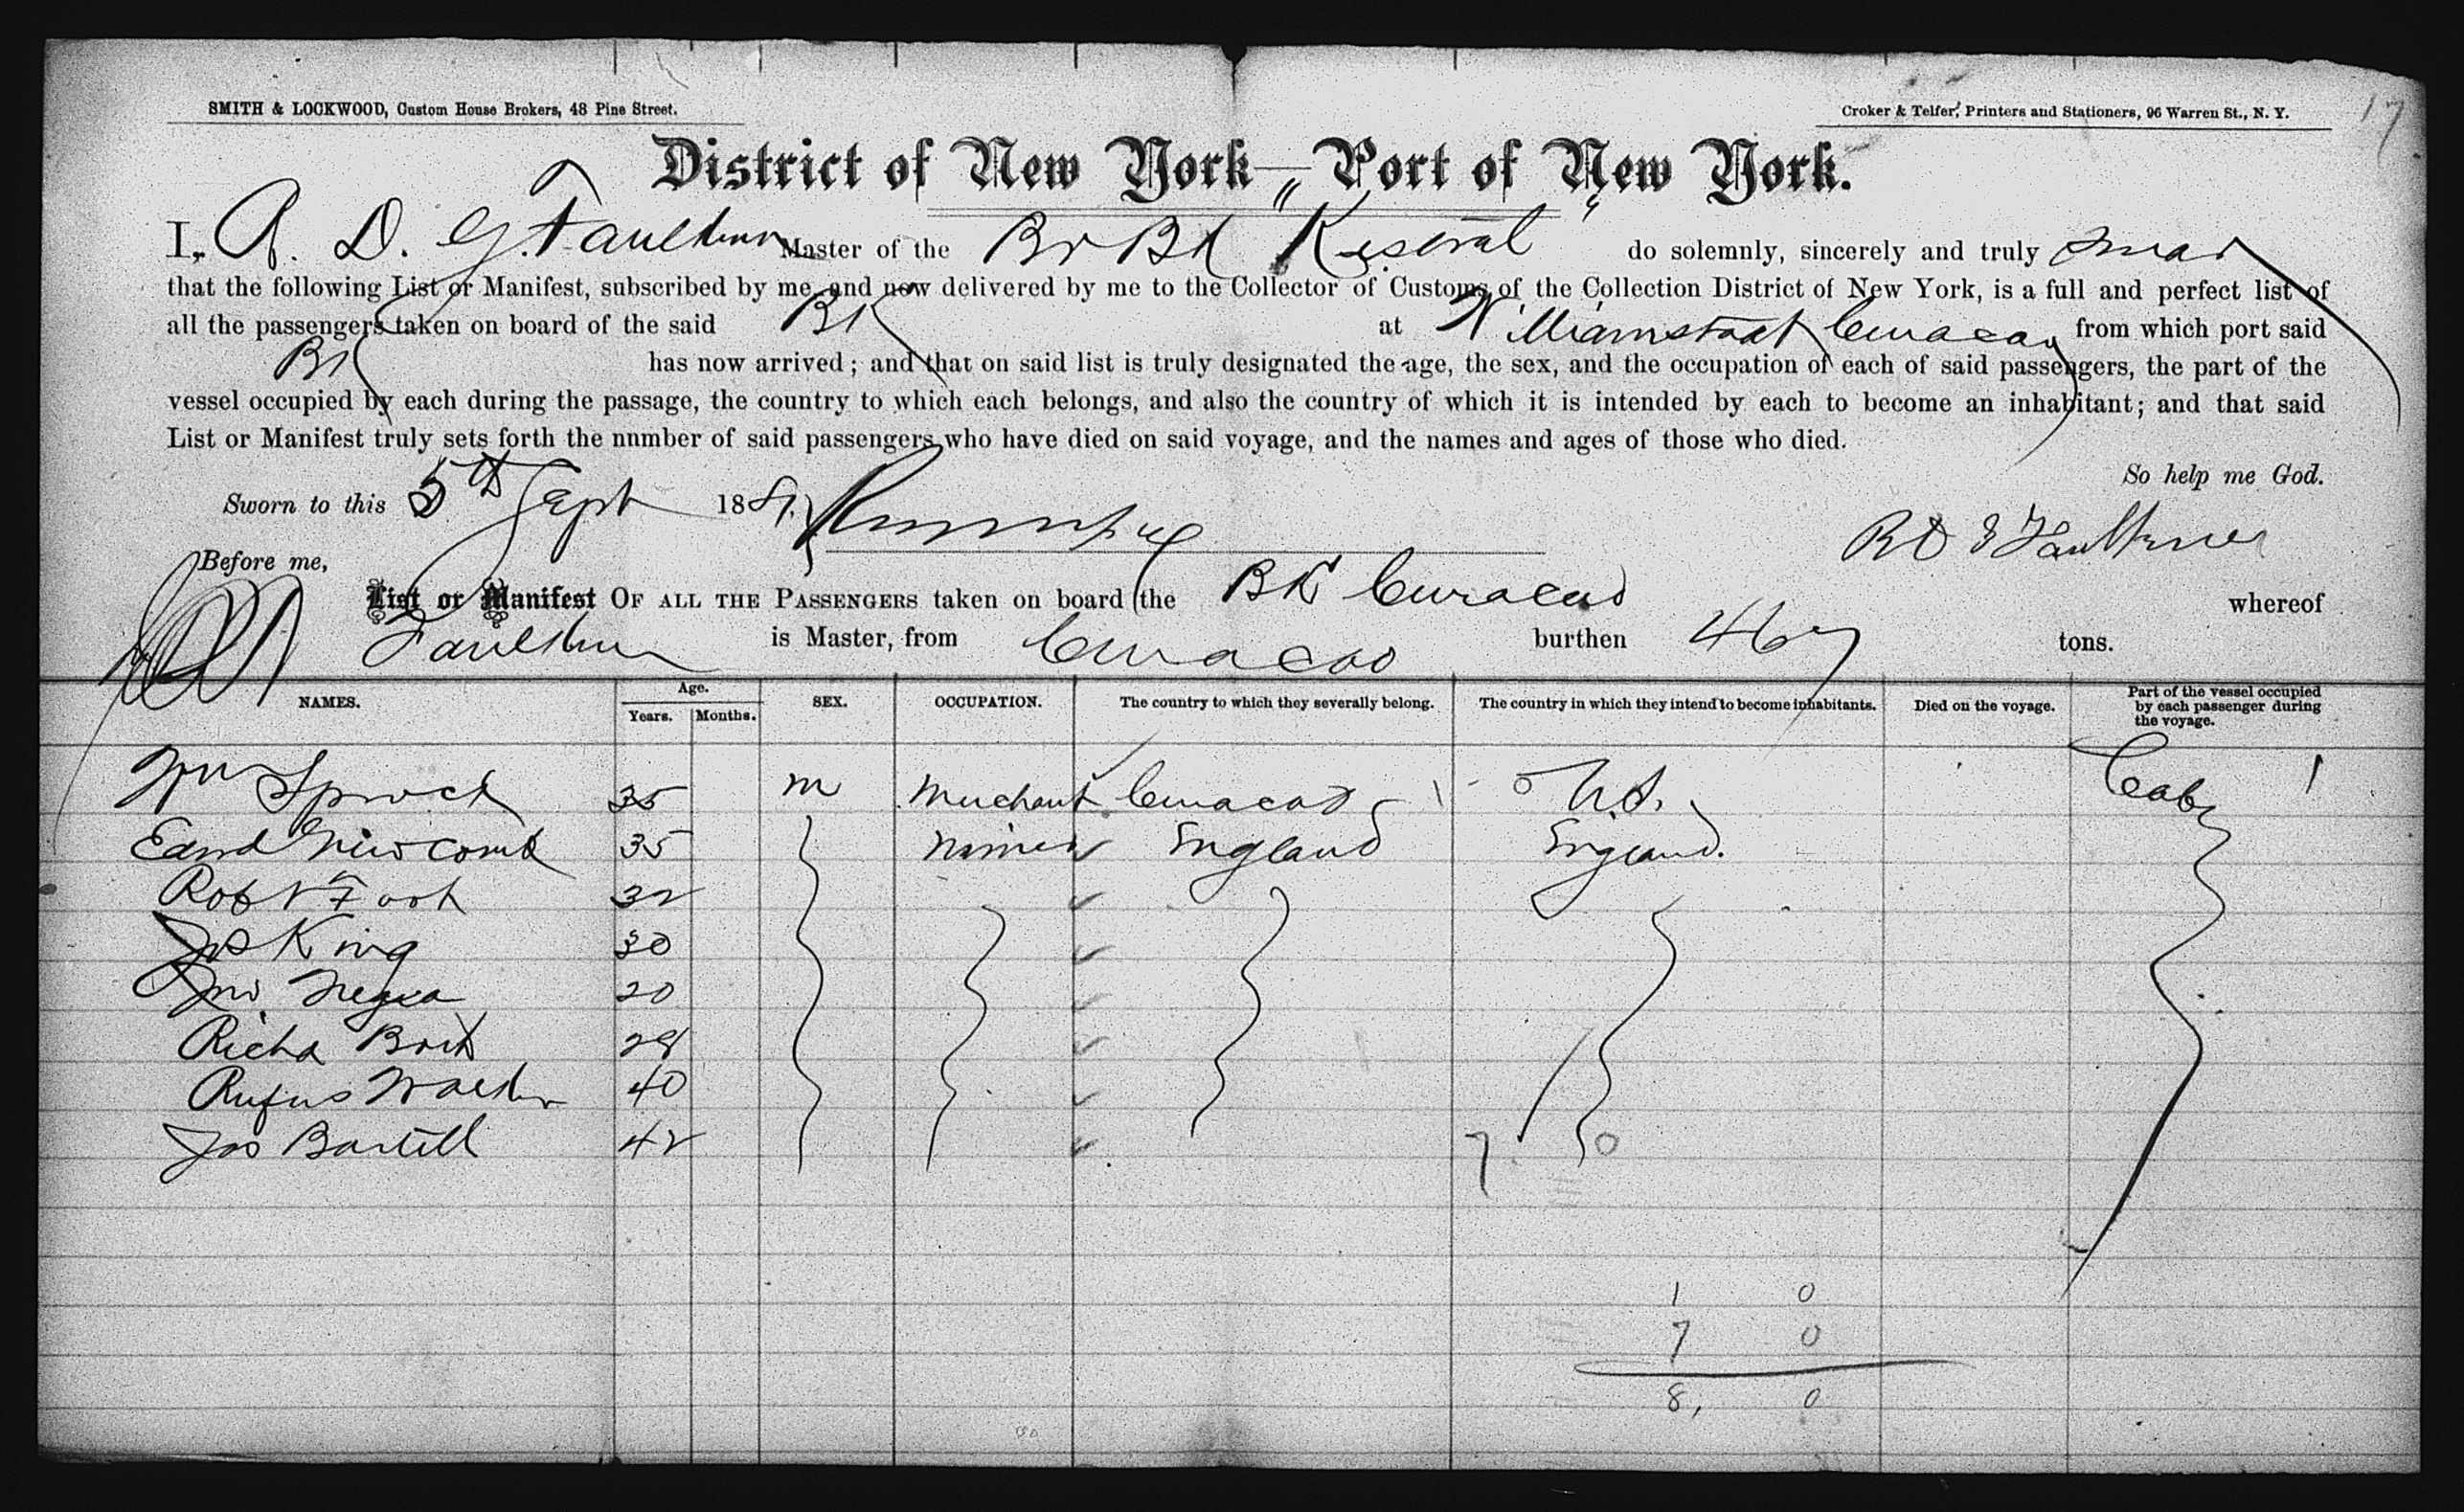 17
SMITH & LOCKWOOD, Custom House Brokers, 48 Pine Street.
Croker & Telfer, Printers and Stationers, 96 Warren St., N. Y.
District of New York — Port of New York.
I, A. D. G. Faulkner Master of the Br Bk "Kestral" do solemnly, sincerely and truly swear
that the following List or Manifest, subscribed by me, and now delivered by me to the Collector of Customs of the Collection District of New York, is a full and perfect list of
all the passengers taken on board of the said Bk at Williamstadt Curacao from which port said
Bk has now arrived; and that on said list is truly designated the age, the sex, and the occupation of each of said passengers, the part of the
vessel occupied by each during the passage, the country to which each belongs, and also the country of which it is intended by each to become an inhabitant; and that said
List or Manifest truly sets forth the nnmber of said passengers who have died on said voyage, and the names and ages of those who died.
So help me God.
Sworn to this 5th Sept 1881.
R D G Faulkner
Before me,
List or Manifest OF ALL THE PASSENGERS taken on board the Bk Curacao whereof
Faulkner is Master, from Curacao burthen 467 tons.
NAMES. Age. Years. Months. SEX. OCCUPATION. The country to which they severally belong. The country in which they intend to become inhabitants. Died on the voyage. Part of the vessel occupied by each passenger during the voyage.
Wm Sprock 35 m Merchant Curacao 1 0 U.S. Cabn 1
Edwd Newcomb 35 Miner England England.
Robt Fook 32
Jos King 30
Jno 20
Richd 28
Rufus Walker 40
Jas Bartell 42 7 0
1 0
7 0
8, 0